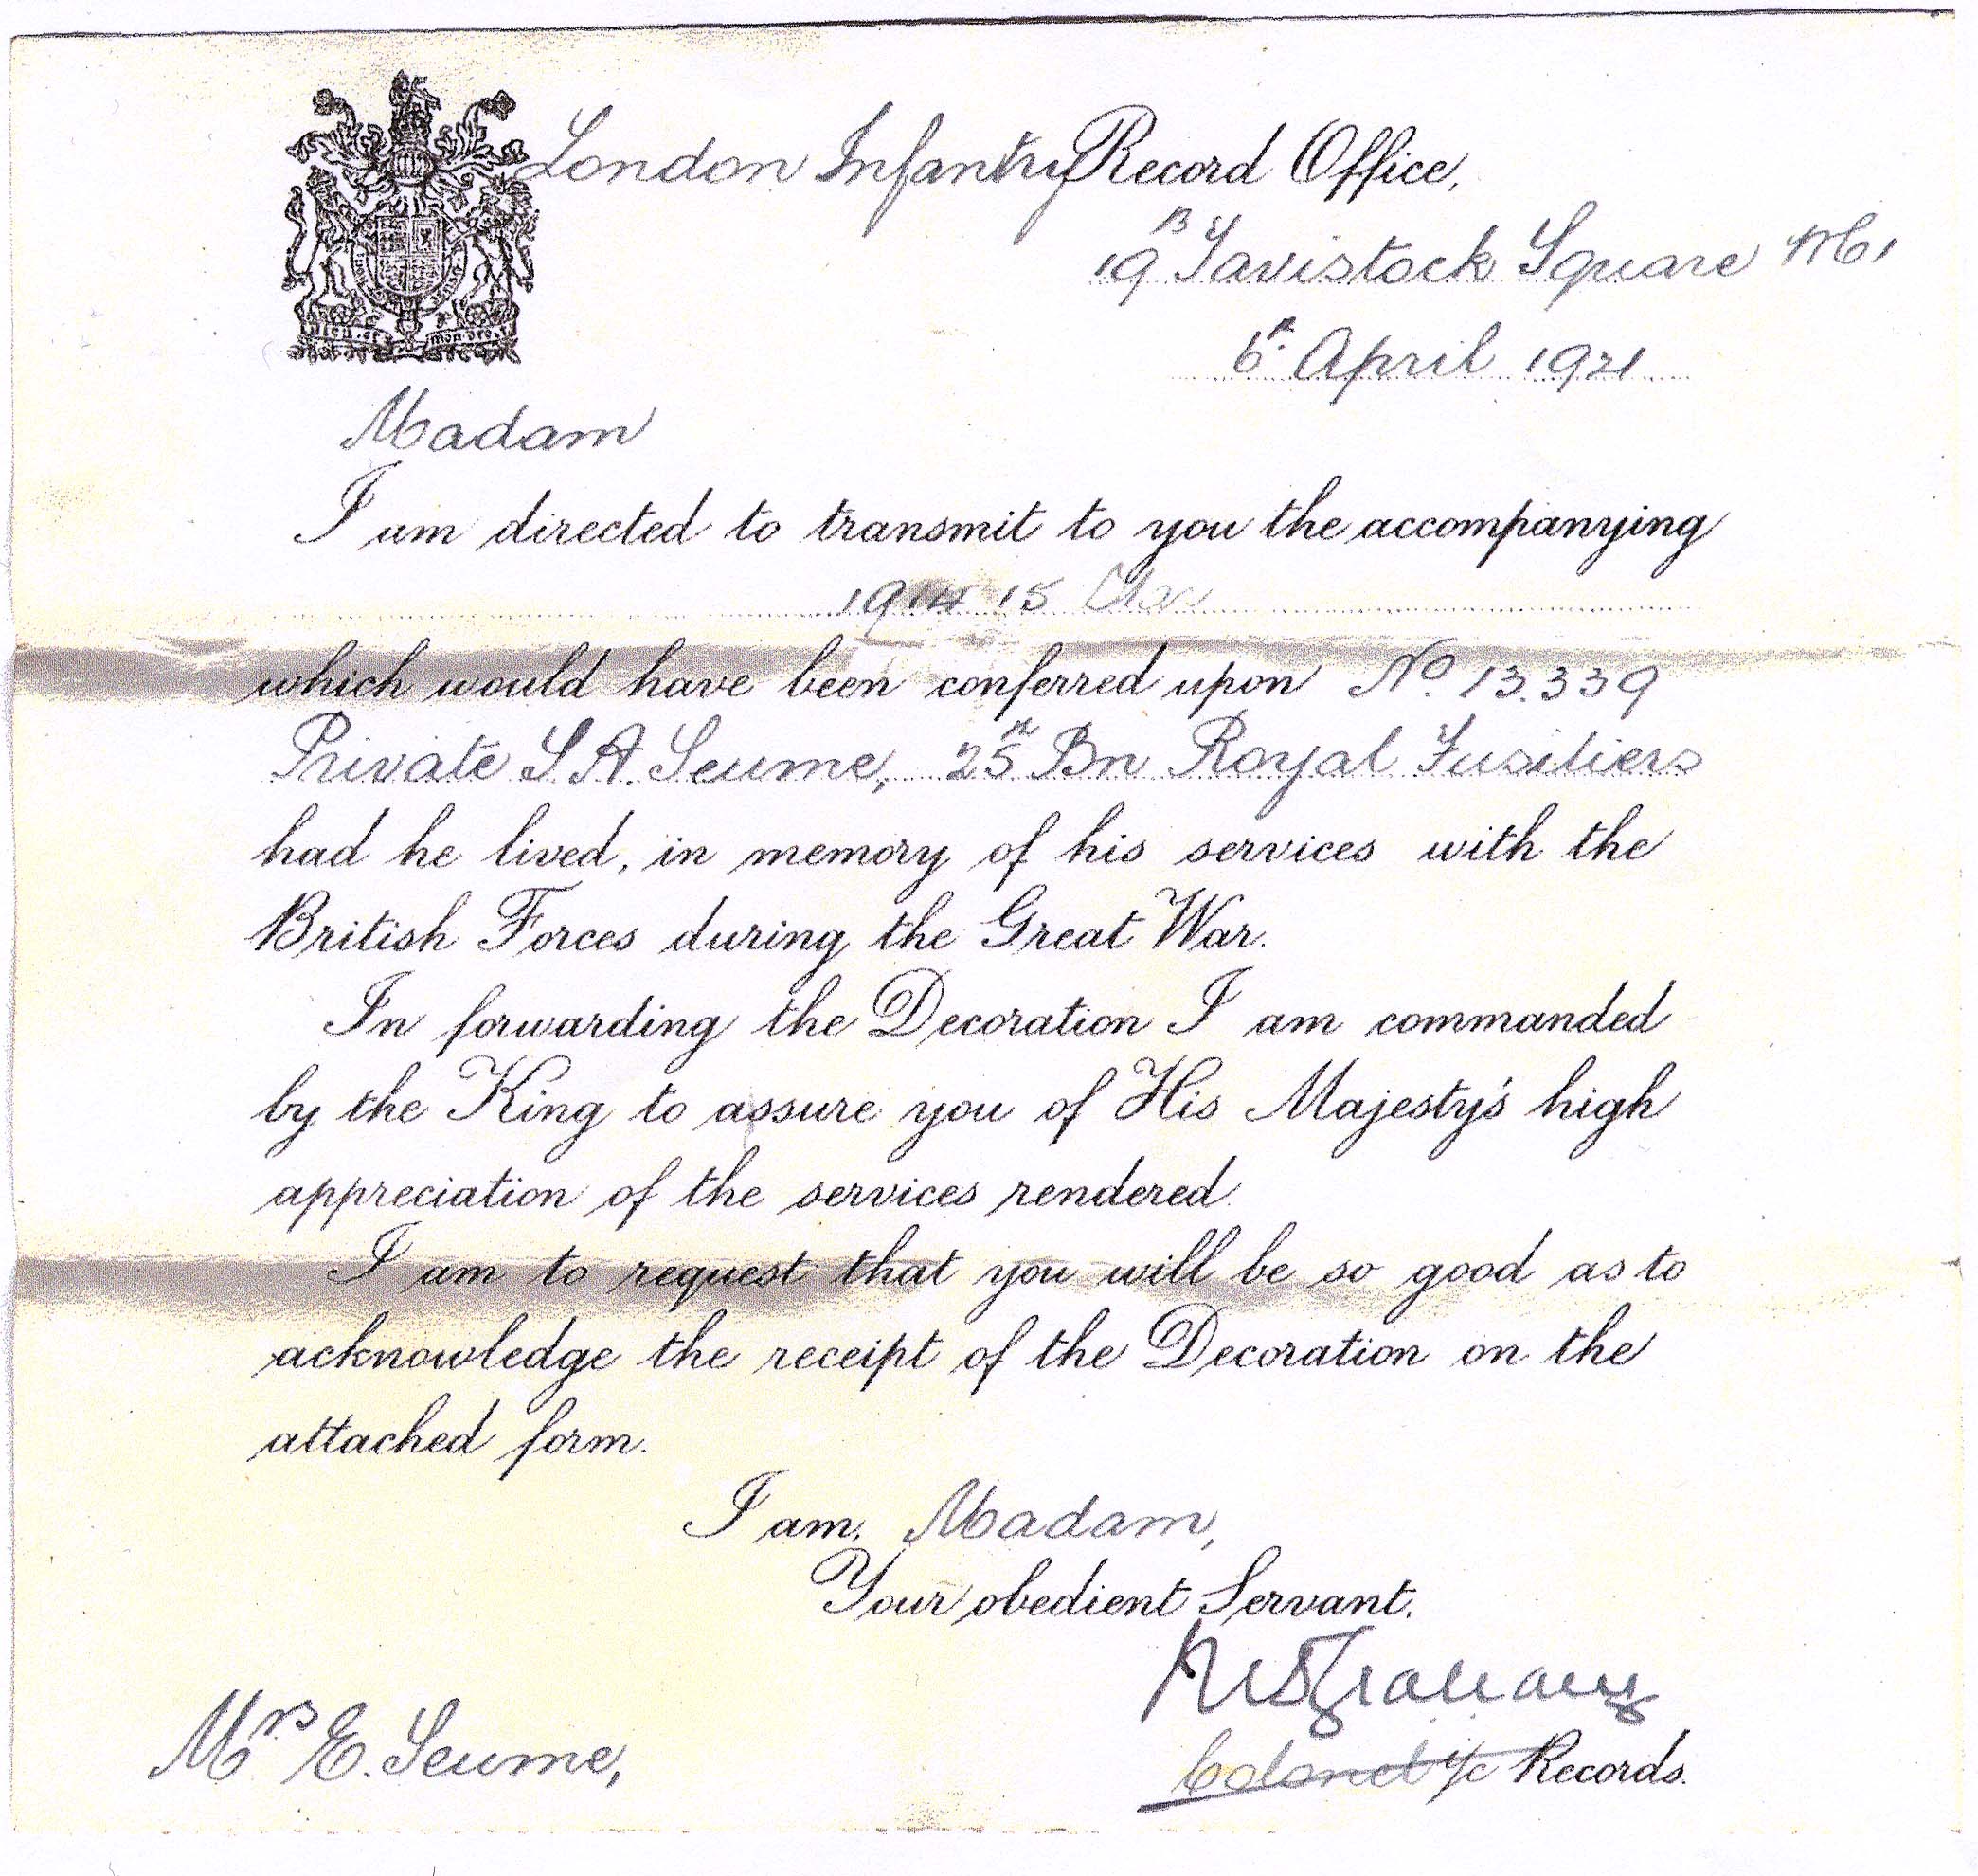 London Infantry Record Office,
19B Tavistock Square WC1
6th April 1921
Dieu et mon droit
Madam
I am directed to transmit to you the accompanying
1914 15 Star
which would have been conferred upon No. 13.339
Private S A. Seume, 25th Bn Royal Fusiliers
had he lived, in memory of his services with the
British Forces during the Great War.
In forwarding the Decoration I am commanded
by the King to assure you of His Majesty's high
appreciation of the services rendered.
I am to request that you will be so good as to
acknowledge the receipt of the Decoration on the
attached form.
I am, Madam,
Your obedient Servant.
Colonel i/c Records.
Mrs E. Seume,